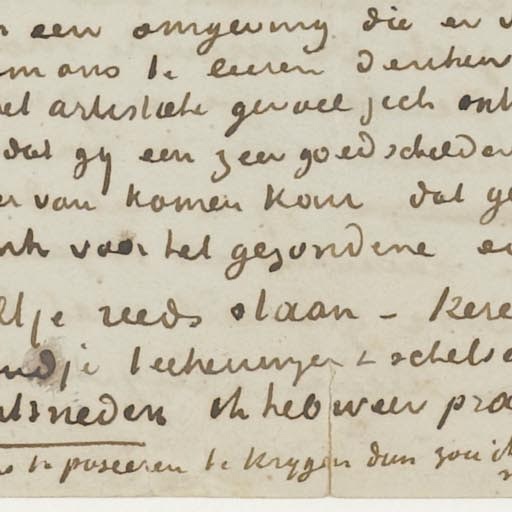 een omgeving die er
om ons te leeren denken
het artistiek gevoel zich ont
dat gy een zeer goed schilder
er van komen kom dat ge
voor het gezondene en
reeds staan -
teekeningen & schets
ik heb weer
te poseeren te krygen dan zou ik